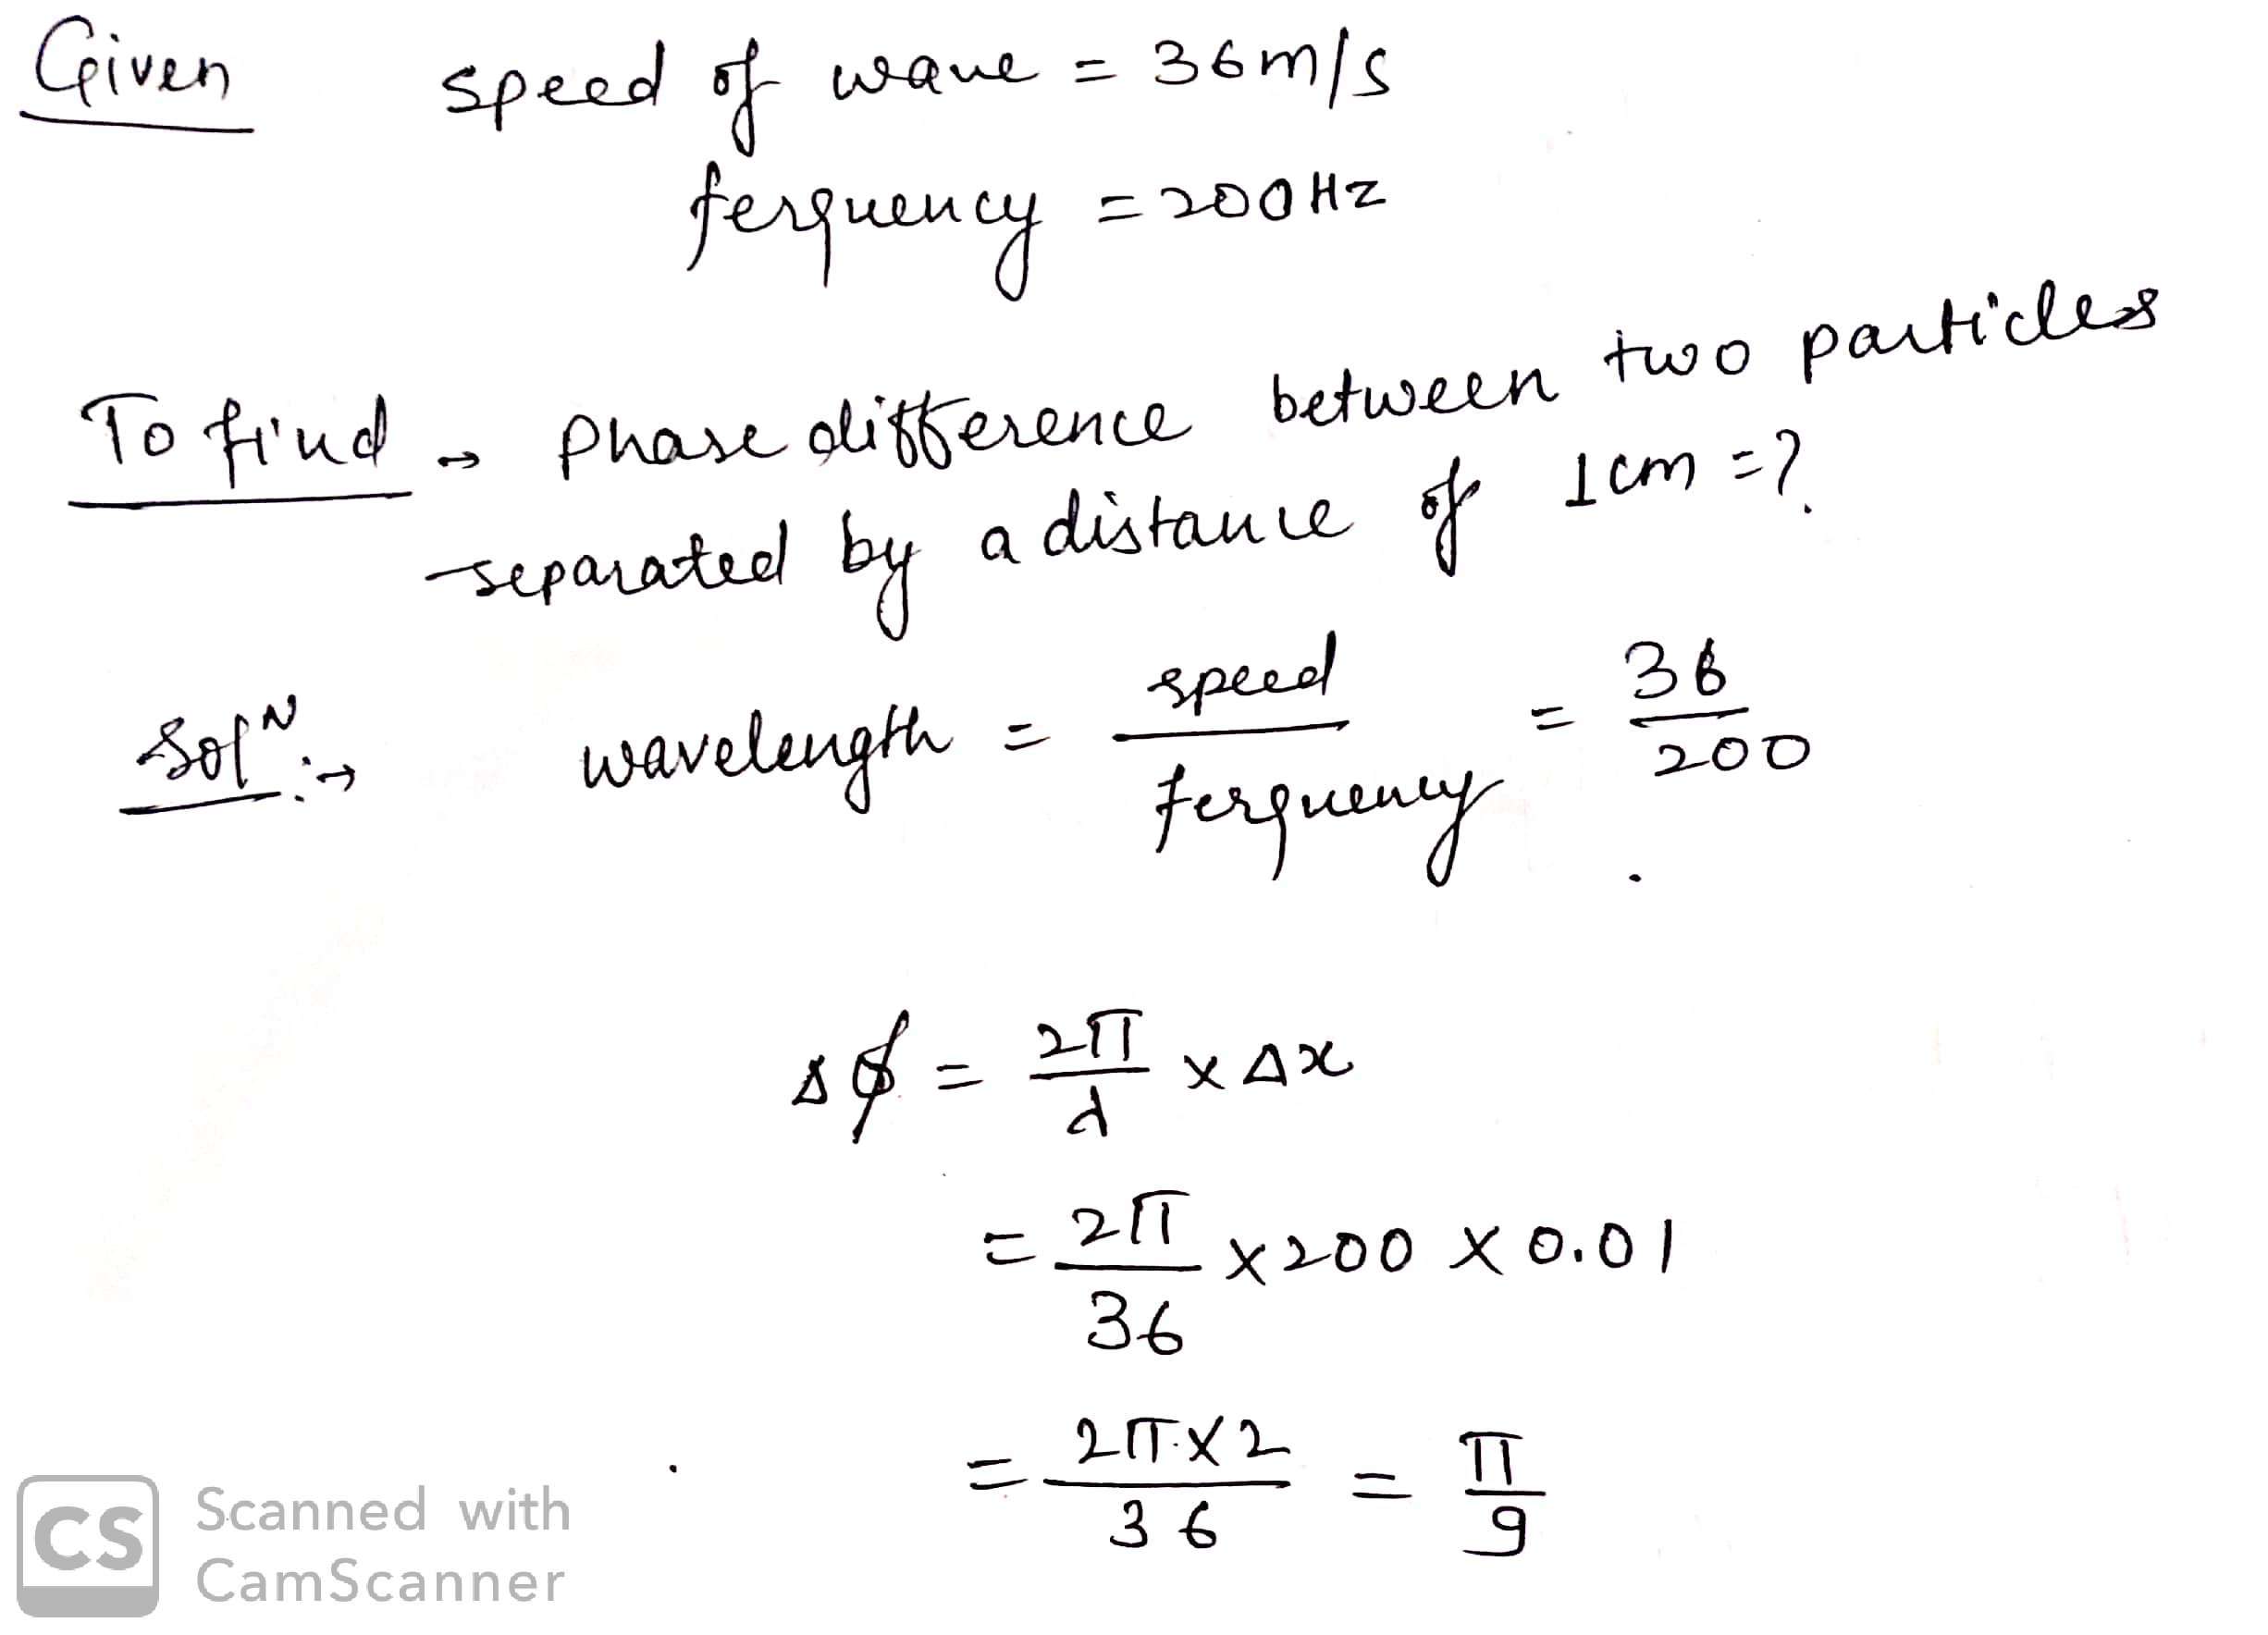 Given speed of wave = 36m/s
ferquency = 200Hz
To find → phase difference between two particles
separated by a distance of 1cm = ?
Solᴺ :→ wavelength = speed / ferquency = 36 / 200
Δφ = 2π / λ × Δx
= 2π / 36 × 200 × 0.01
= 2π × 2 / 36 = π / 9
CS Scanned with
CamScanner